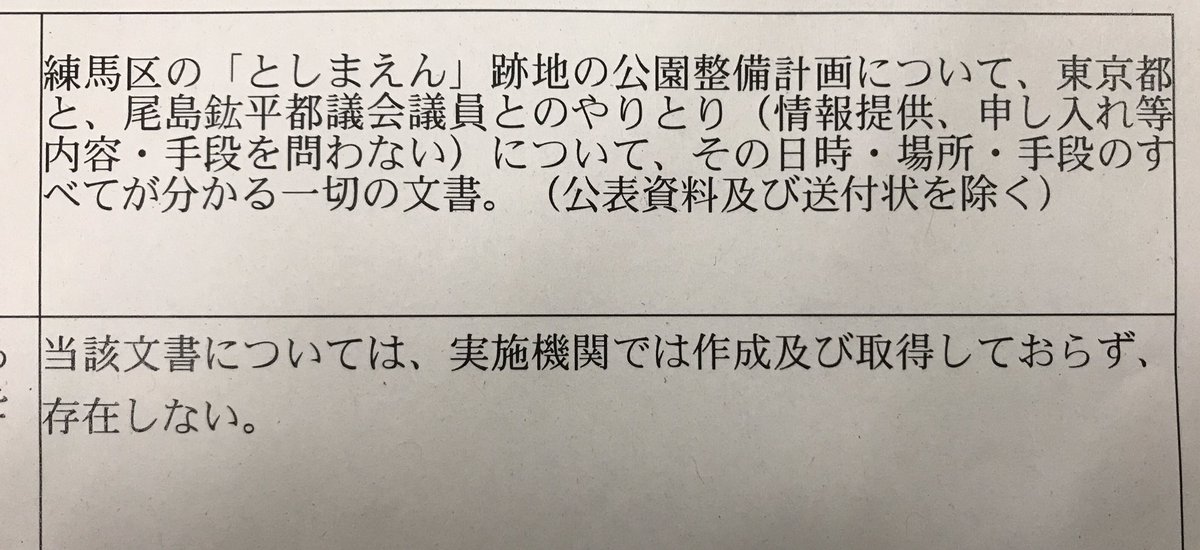 練馬区の「としまえん」跡地の公園整備計画について、東京都
と、尾島鈜平都議会議員とのやりとり（情報提供、申し入れ等
内容・手段を問わない）について、その日時・場所・手段のす
べてが分かる一切の文書。（公表資料及び送付状を除く）
当該文書については、実施機関では作成及び取得しておらず、
存在しない。